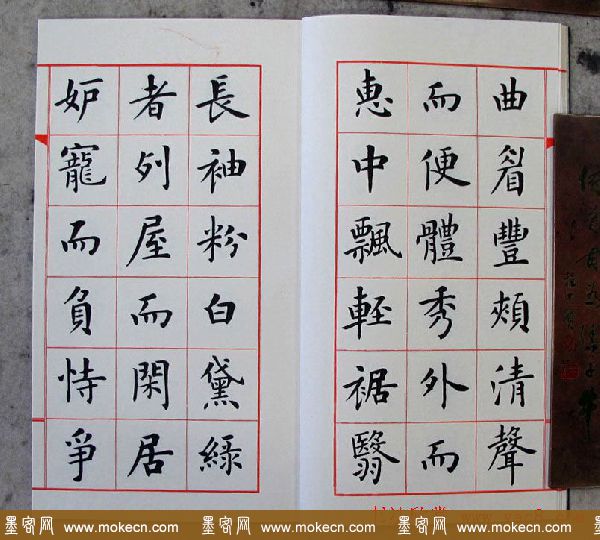 曲眉豐頰清聲
而便體秀外而
惠中飄輕裾翳
長袖粉白黛綠
者列屋而閑居
妒寵而負恃爭
墨客网 www.mokecn.com 墨客网 www.mokecn.com 墨客网 www.mokecn.com